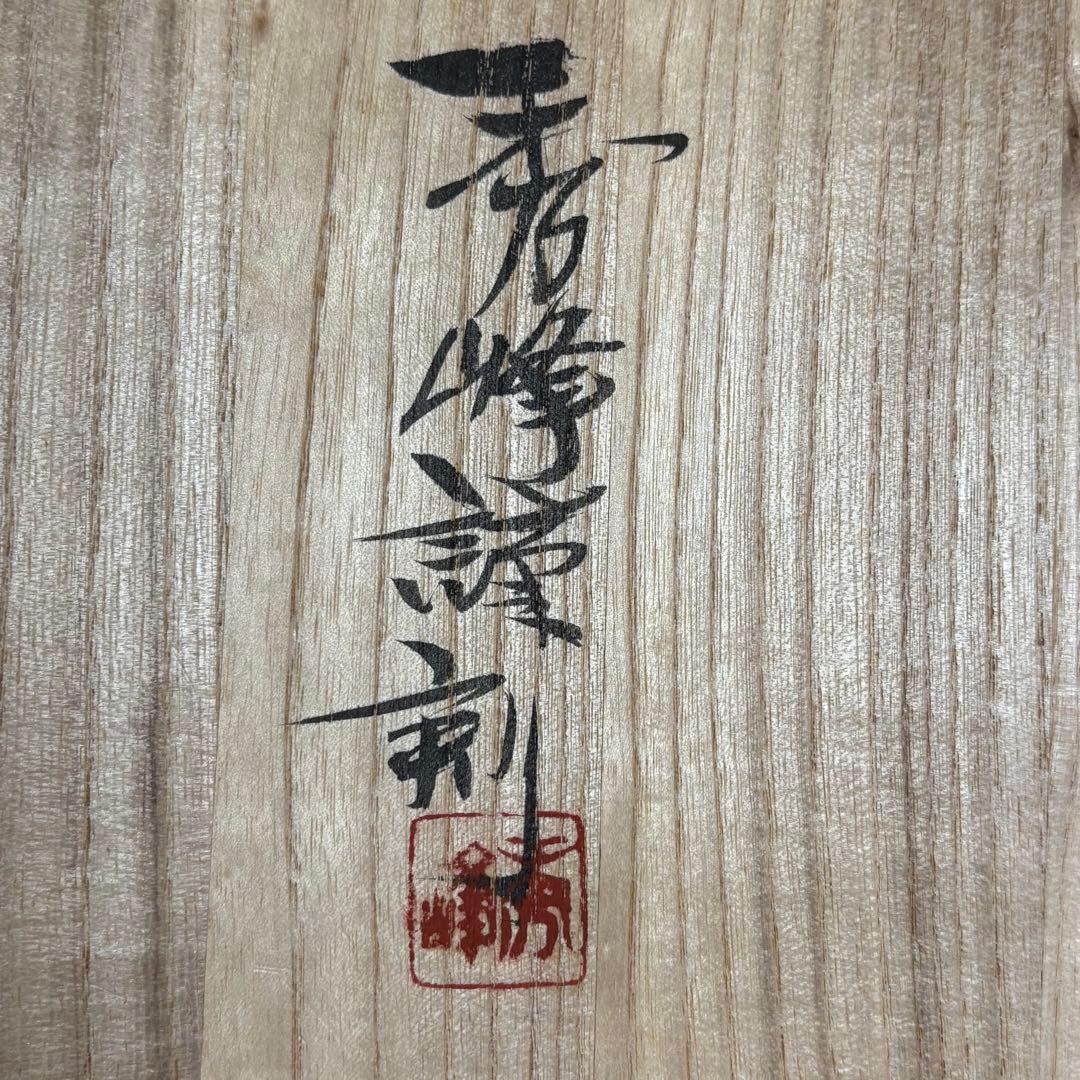 秀峰謹刻
秀峰